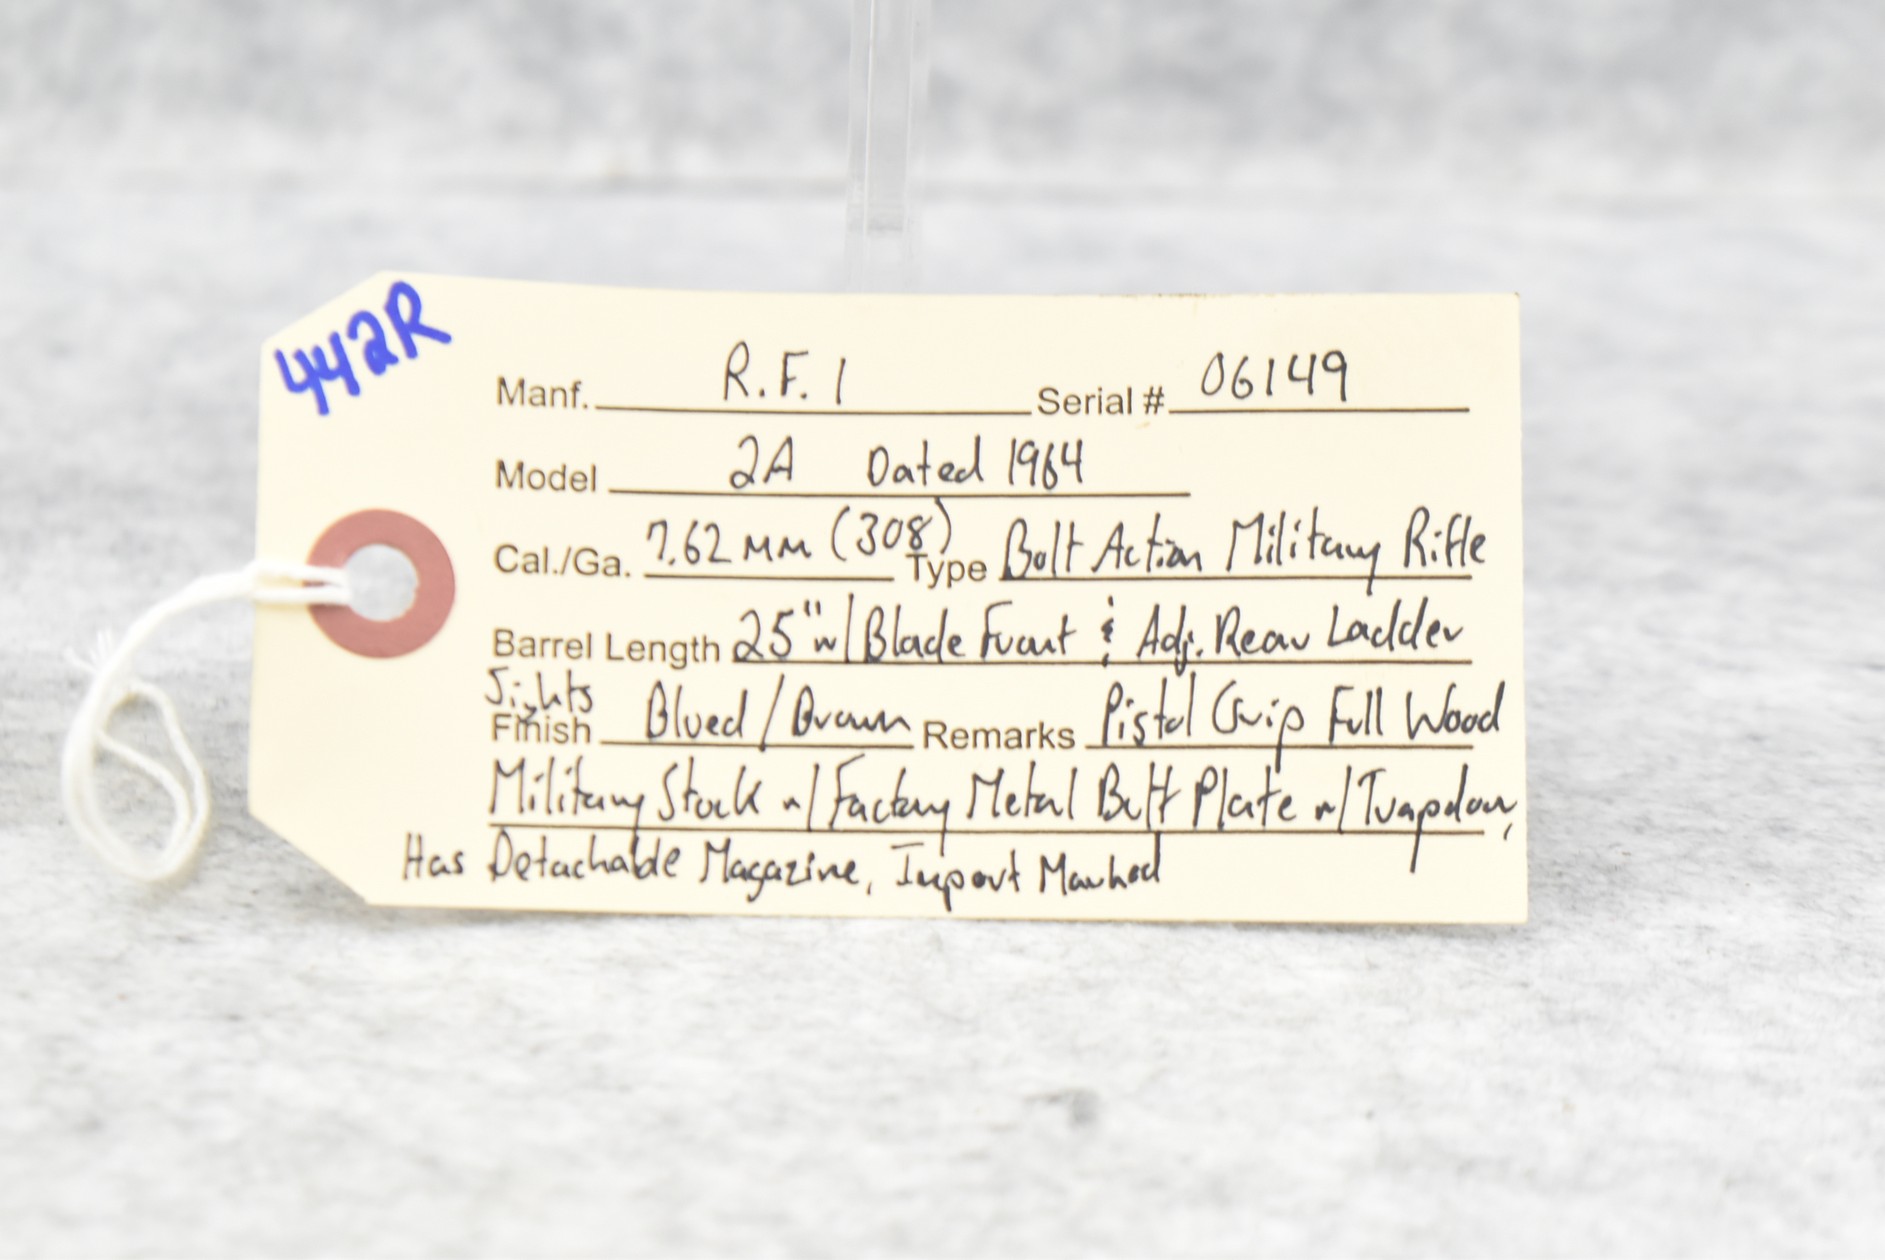 442R
Manf. R.F.I Serial # 06149
Model 2A Dated 1964
Cal./Ga. 7.62 MM (308) Type Bolt Action Military Rifle
Barrel Length 25" w/ Blade Front & Adj. Rear Ladder
Sights
Finish Blued / Brown Remarks Pistol Grip Full Wood
Military Stock w/ Factory Metal Butt Plate w/ Trapdoor,
Has Detachable Magazine, Import Marked